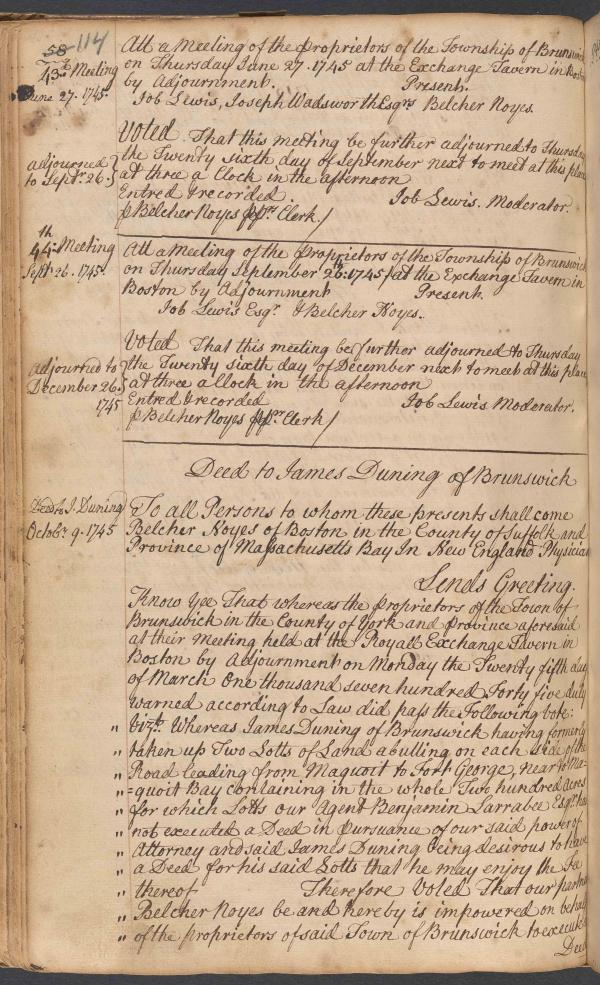 58 114
43d. Meeting
June 27. 1745.
Att a Meeting of the Proprietors of the Township of Brunswick
on Thursday June 27. 1745 at the Exchange Tavern in Boston
by Adjournment. Present.
Job Lewis, Joseph Wadsworth Esqrs Belcher Noyes.
adjourned
to Sept. 26.
Voted That this meeting be further adjourned to Thursday
the Twenty sixth day of September next to meet at this place
at three a Clock in the afternoon
Entred & recorded. Job Lewis. Moderator.
p Belcher Noyes Clerk.
44th. Meeting
Sept. 26. 1745.
Att a Meeting of the Proprietors of the Township of Brunswick
on Thursday September 26th. 1745 at the Exchange Tavern in
Boston by Adjournment Present.
Job Lewis Esqr. & Belcher Noyes.
Adjourned to
December 26
1745
Voted That this meeting be further adjourned to Thursday
the Twenty sixth day of December next to meet at this place
at three a Clock in the afternoon
Entred & recorded Job Lewis Moderator.
p Belcher Noyes Clerk
Deed to James Duning of Brunswick
Deed to J. Duning
Octobr. 9. 1745
To all Persons to whom these presents shall come
Belcher Noyes of Boston in the County of Suffolk and
Province of Massachusetts Bay In New England Physician
Sends Greeting.
Know Yee That whereas the Proprietors of the Town of
Brunswick in the County of York and Province aforesaid
at their Meeting held at the Royall Exchange Tavern in
Boston by Adjournment on Monday the Twenty fifth day
of March One thousand seven hundred Forty five duly
warned according to Law did pass the Following vote:
" vizt. Whereas James Duning of Brunswick having formerly
" taken up Two Lotts of Land abutting on each side of the
" Road leading from Maquoit to Fort George, near to Ma-
" =quoit Bay containing in the whole Two hundred acres
" for which Lotts our Agent Benjamin Larrabee Esqr. has
" not executed a Deed in pursuance of our said power of
" Attorney and said James Duning being desirous to have
" a Deed for his said Lotts that he may enjoy the
" thereof Therefore Voted That our partner
" Belcher Noyes be and hereby is impowered on behalf
" of the proprietors of said Town of Brunswick to execute a
Deed